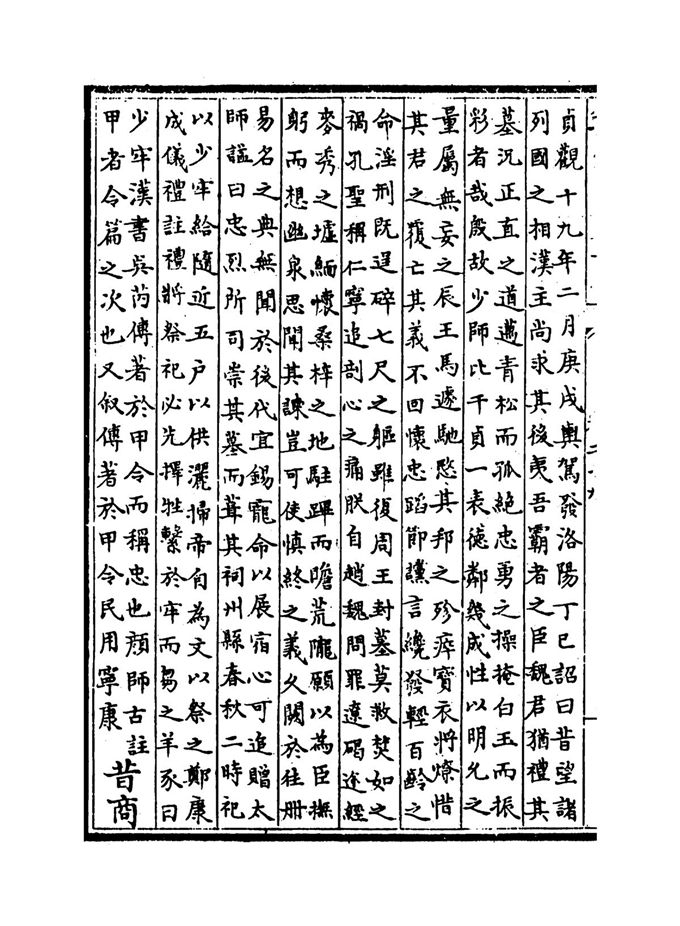 貞觀十九年二月庚戌輿駕發洛陽丁巳詔曰昔望諸
列國之相漢主尚求其後夷吾霸者之臣魏君猶禮其
墓況正直之道邁青松而孤絶忠勇之操掩白玉而振
彩者哉殷故少師比干貞一表德鄰幾成性以明允之
量屬無妄之辰王馬遽馳愍其邦之殄瘁寳衣將燎惜
其君之覆亡其義不回懷忠蹈節讜言纔發輕百齡之
命淫刑既逞碎七尺之軀雖復周王封墓莫救焚如之
禍孔聖稱仁寧追剖心之痛朕自趙魏問罪遼碣途經
麥秀之墟緬懷桑梓之地駐蹕而瞻荒隴願以為臣撫
躬而想幽泉思聞其諫豈可使慎終之義久闕於往冊
易名之典無聞於後代宜錫寵命以展宿心可追贈太
師諡曰忠烈所司崇其墓而葺其祠州縣春秋二時祀
以少牢給隨近五户以供灑掃帝自為文以祭之鄭康
成儀禮註禮將祭祀必先擇牲繫於牢而芻之羊豕曰
少牢漢書吳芮傳著於甲令而稱忠也顔師古註
甲者令篇之次也又叙傳著於甲令民用寧康
昔商